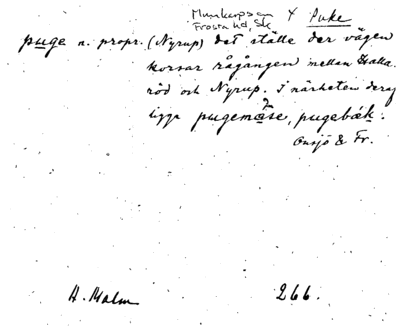 Munkarps sn + Puke
Frosta hd, Sk
puge n. propr. (Nyrup) det ställe der vägen
korsar rågången mellan Halla-
röd och Nyrup. I närheten deraf
ligga pugemåse, pugebäk.
Onsjö & Fr.
H. Malm 266.